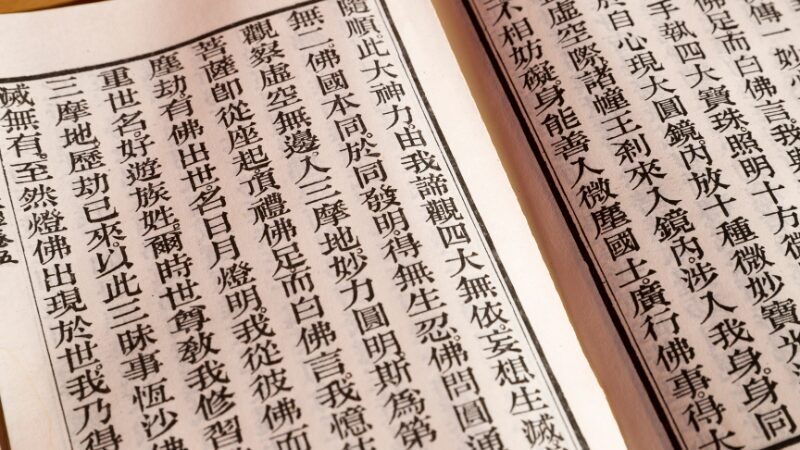 傳一妙
佛足而白佛言。我
手執四大寶珠。照明十方微
於自心現大圓鏡。內放十種微妙寶光
虛空際。諸幢王剎。來入鏡內。涉入我身。身同
不相妨礙。身能善入微塵國土。廣行佛事。得大
隨順。此大神力。由我諦觀四大無依。妄想生滅
無二。佛國本同。於同發明。得無生忍。佛問圓通
觀察虛空無邊。入三摩地。妙力圓明。斯為第
菩薩即從座起。頂禮佛足。而白佛言。我憶
塵劫。有佛出世。名日月燈明。我從彼佛而
重世名。好遊族姓。爾時世尊。教我修習
三摩地。歷劫已來。以此三昧。事恆沙佛
滅無有。至然燈佛出現於世。我乃得